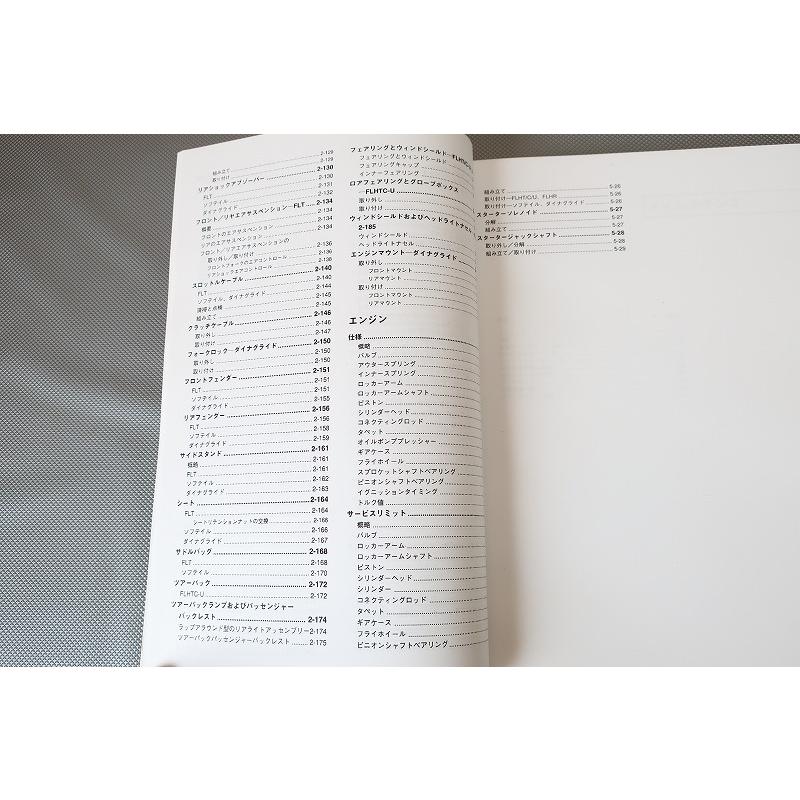 組み立て 2-129
取り付け 2-129
リアショックアブソーバー 2-130
FLT 2-130
ソフテイル 2-131
ダイナグライド 2-132
フロント／リヤエアサスペンション—FLT 2-134
概要 2-134
フロントのエアサスペンション 2-134
リアのエアサスペンション 2-134
フロント／リアエアサスペンションの
取り外し／取り付け 2-136
フロントフォークのエアコントロール 2-136
リアショックエアコントロール 2-138
スロットルケーブル 2-140
FLT 2-140
ソフテイル、ダイナグライド 2-144
清掃と点検 2-145
組み立て 2-145
クラッチケーブル 2-146
取り外し 2-146
取り付け 2-147
フォークロック—ダイナグライド 2-150
取り外し 2-150
取り付け 2-150
フロントフェンダー 2-151
FLT 2-151
ソフテイル 2-151
ダイナグライド 2-155
リアフェンダー 2-156
FLT 2-156
ソフテイル 2-158
ダイナグライド 2-159
サイドスタンド 2-161
概略 2-161
FLT 2-161
ソフテイル 2-162
ダイナグライド 2-163
シート 2-164
FLT 2-164
シートリテンションナットの交換 2-166
ソフテイル 2-166
ダイナグライド 2-167
サドルバッグ 2-168
FLT 2-168
ソフテイル 2-170
ツアーパック 2-172
FLHTC-U 2-172
ツアーパックランプおよびパッセンジャー
バックレスト 2-174
ラップアラウンド型のリアライトアッセンブリー 2-174
ツアーパックパッセンジャーバックレスト 2-175
フェアリングとウィンドシールド—FLHT/C
フェアリングとウィンドシールド
フェアリングキャップ
インナーフェアリング
ロアフェアリングとグローブボックス
—FLHTC-U
取り外し
取り付け
ウィンドシールドおよびヘッドライトナセル
2-185
ウィンドシールド
ヘッドライトナセル
エンジンマウント—ダイナグライド
取り外し
フロントマウント
リアマウント
取り付け
フロントマウント
リアマウント
エンジン
仕様
概略
バルブ
アウタースプリング
インナースプリング
ロッカーアーム
ロッカーアームシャフト
ピストン
シリンダーヘッド
コネクティングロッド
タペット
オイルポンププレッシャー
ギアケース
フライホイール
スプロケットシャフトベアリング
ピニオンシャフトベアリング
イグニッションタイミング
トルク値
サービスリミット
概略
バルブ
ロッカーアーム
ロッカーアームシャフト
ピストン
シリンダーヘッド
シリンダー
コネクティングロッド
タペット
ギアケース
フライホイール
ピニオンシャフトベアリング
組み立て 5-26
取り付け—FLHT/C/U、FLHR 5-26
取り付け—ソフテイル、ダイナグライド 5-26
スターターソレノイド 5-27
分解 5-27
組み立て 5-27
スタータージャックシャフト 5-28
取り外し／分解 5-28
組み立て／取り付け 5-29